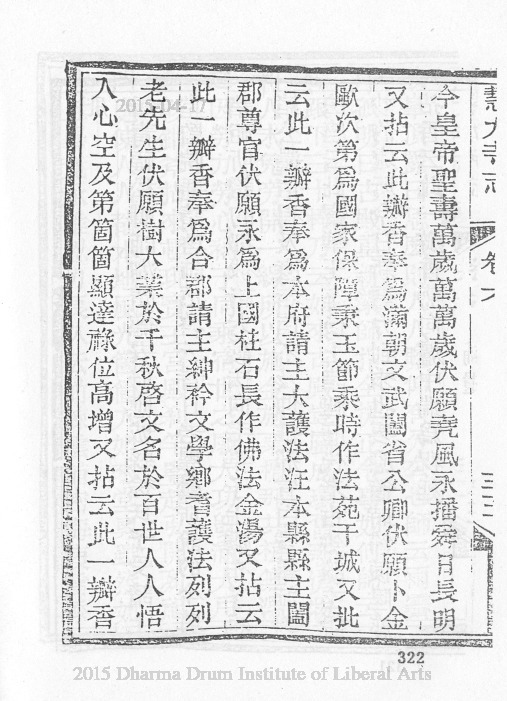 慧大寺志 卷六 三三
今皇帝聖壽萬歲萬萬歲伏願堯風永播舜日長明
又拈云此瓣香奉為滿朝文武闔省公卿伏願卜金
歐次第為國家保障秉玉節乘時作法苑干城又批
云此一瓣香奉為本府請主大護法汪本縣縣主闔
郡尊官伏願永為上國柱石長作佛法金湯又拈云
此一瓣香奉為合郡請主紳衿文學鄉耆護法列列
老先生伏願樹大業於千秋啓文名於百世人人悟
入心空及第箇箇顯達祿位高增又拈云此一瓣香
2015-04-17
322
2015 Dharma Drum Institute of Liberal Arts